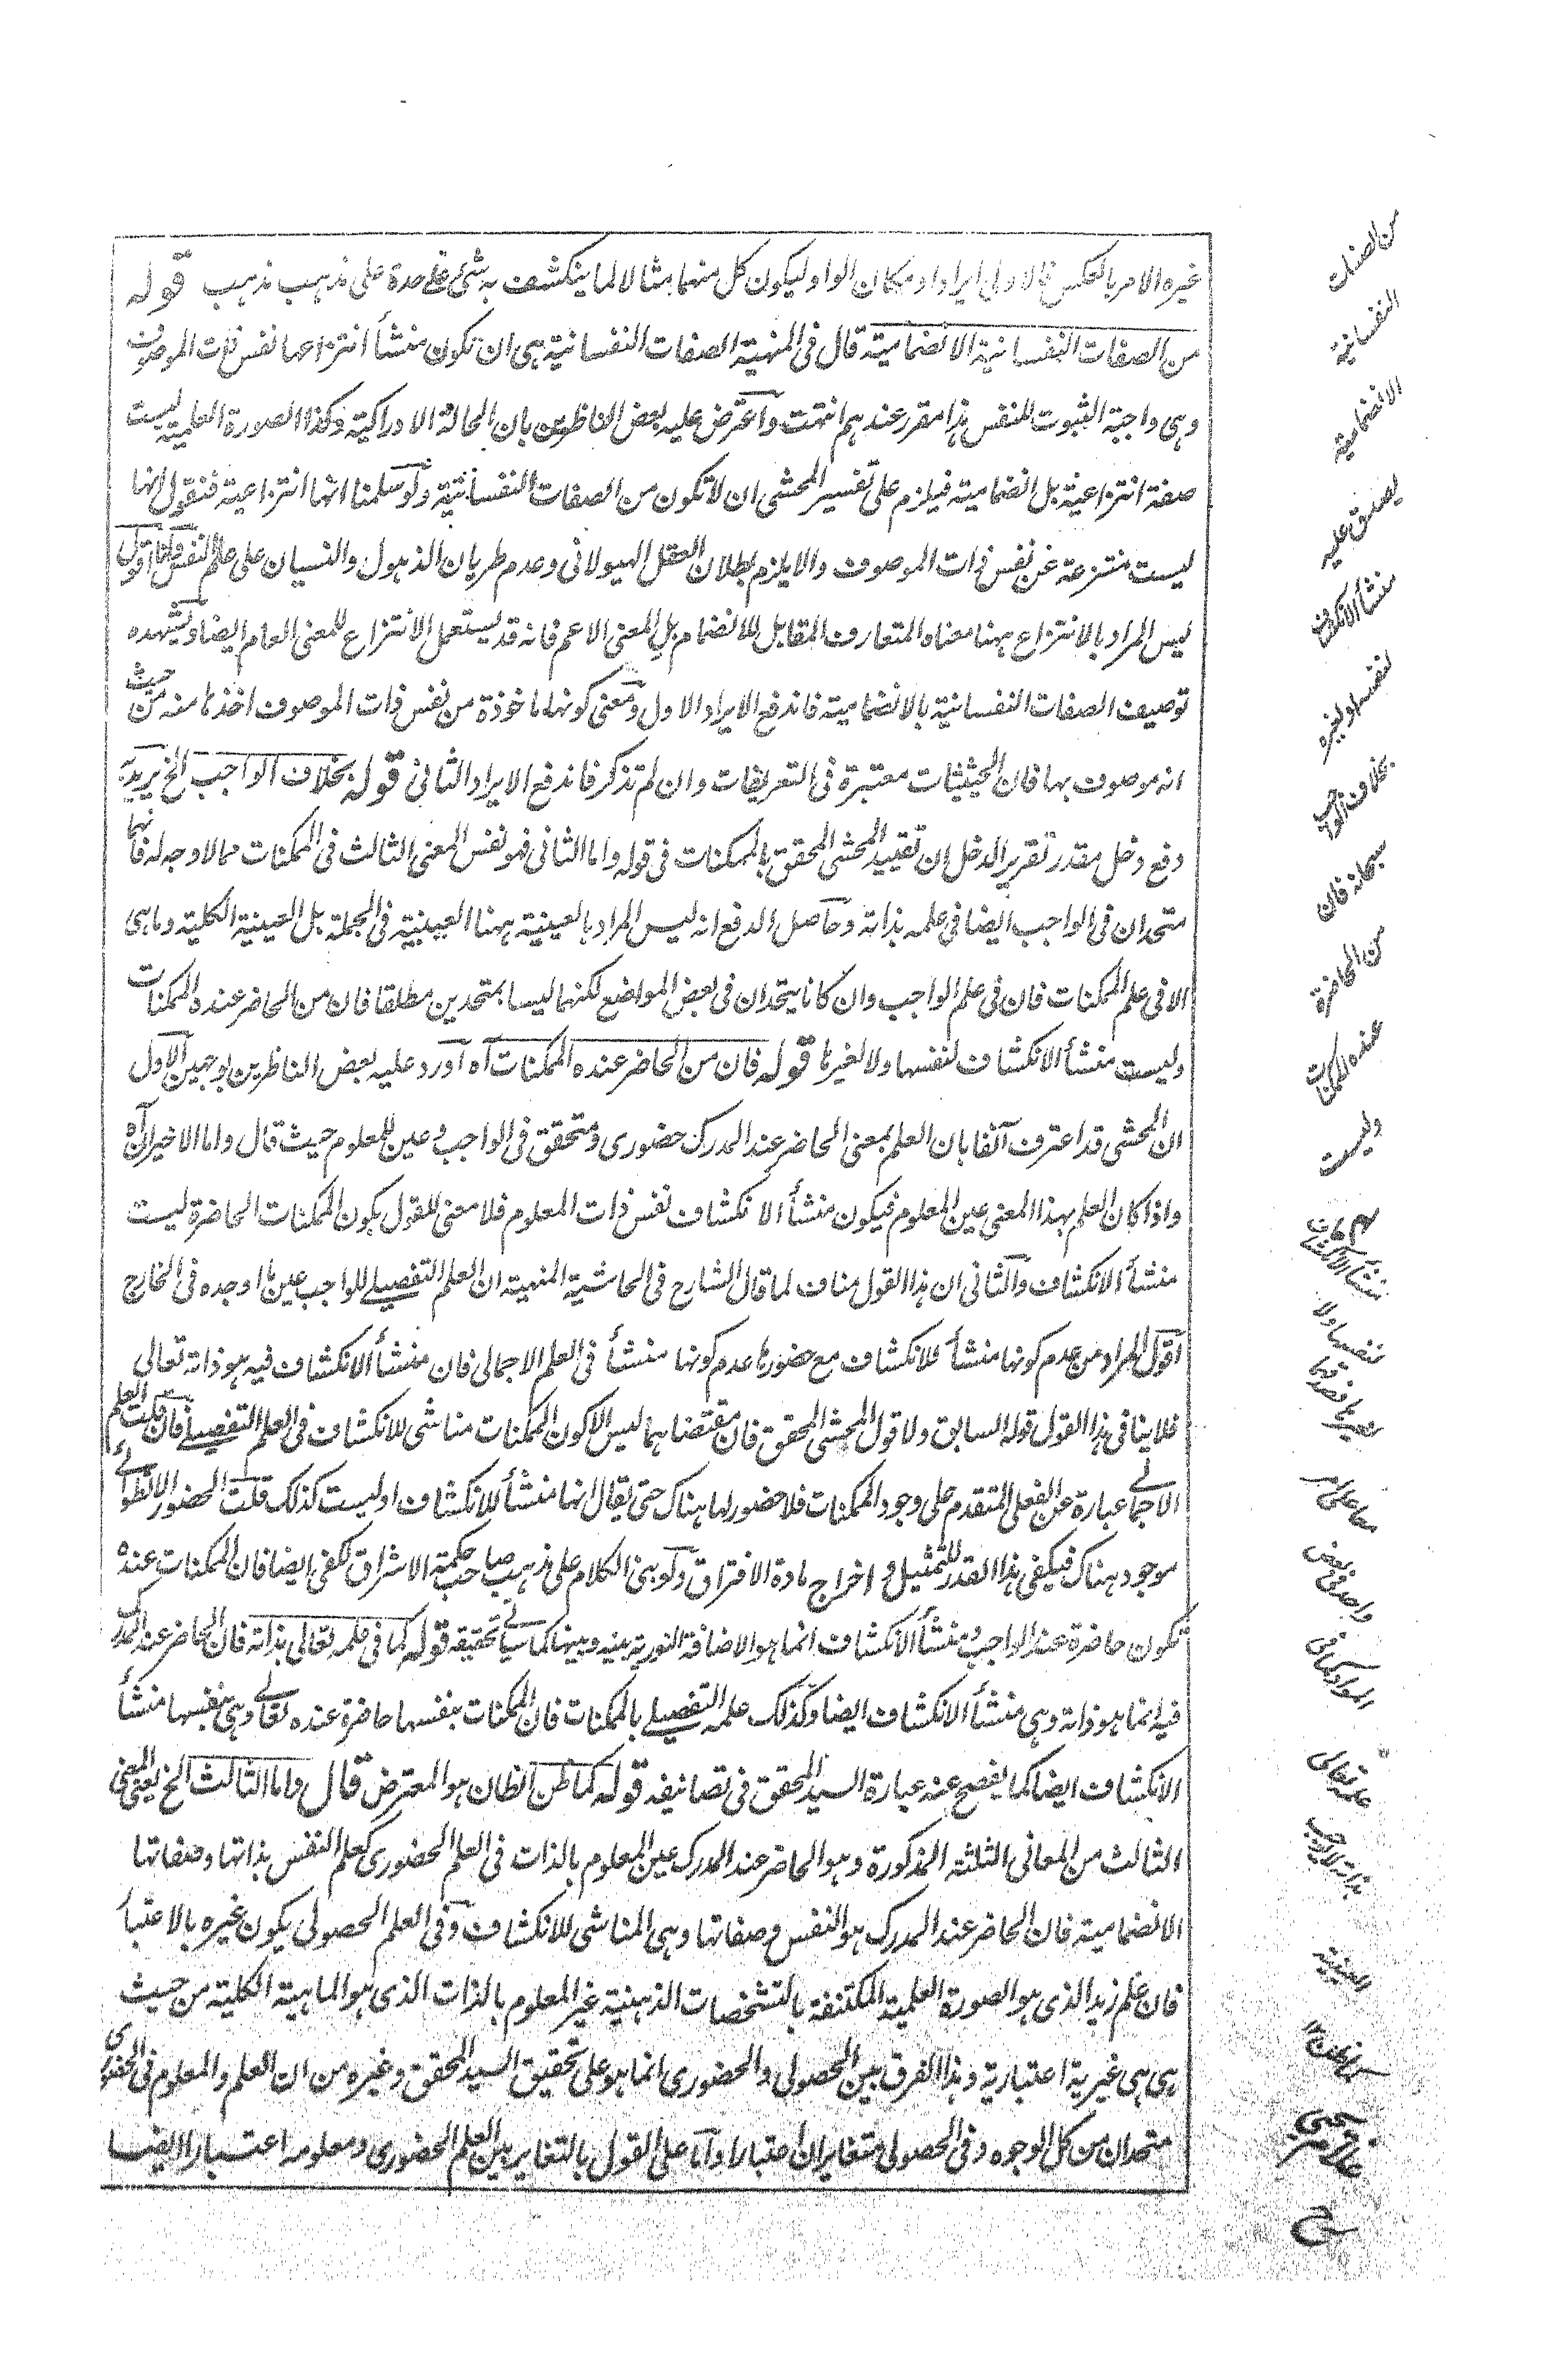 غيره الامر بالعكس فالاولى ايراد او مكان الواو ليكون كل منهما مثالا لما ينكشف به شئ على حدة على مذهب مذهب قوله
من الصفات النفسانية الانضمامية قال فى المنهية الصفات النفسانية هى ان تكون منشأ انتزاعها نفس ذات الموصوف
وهى واجبة الثبوت للنفس هذا مقرر عندهم انتهت واعترض عليه بعض الناظرين بان الحالة الادراكية وكذا الصورة العلمية ليست
صفة انتزاعية بل انضمامية فيلزم على تفسير المحشى ان لا تكون من الصفات النفسانية ولو سلمنا انها انتزاعية فنقول انها
ليست منتزعة عن نفس ذات الموصوف والا يلزم بطلان العقل الهيولانى وعدم طريان الذهول والنسيان على علم النفس وانا اقول
ليس المراد بالانتزاع ههنا معناه المتعارف المقابل للانضمام بل المعنى الاعم فانه قد يستعمل الانتزاع للمعنى العام ايضا ويشهده
توصيف الصفات النفسانية بالانضمامية فاندفع الايراد الاول ومعنى كونها ماخوذة من نفس ذات الموصوف اخذها منه من حيث
انه موصوف بها فان الحيثيات معتبرة فى التعريفات وان لم تذكر فاندفع الايراد الثانى قوله بخلاف الواجب الخ يريد به
دفع دخل مقدر تقرير الدخل ان تقييد المحشى المحقق بالممكنات فى قوله واما الثانى فهو نفس المعنى الثالث فى الممكنات مما لا وجه له فانهما
متحدان فى الواجب ايضا فى علمه بذاته وحاصل الدفع انه ليس المراد بالعينية ههنا العينية فى الجملة بل العينية الكلية وما هى
الا فى علم الممكنات فان فى علم الواجب وان كانا يتحدان فى بعض المواضع لكنهما ليسا بمتحدين مطلقا فان من الحاضر عنده الممكنات
وليست منشأ الانكشاف لنفسها ولا لغيرها قوله فان من الحاضر عنده الممكنات آه اورد عليه بعض الناظرين بوجهين الاول
ان المحشى قد اعترف آنفا بان العلم بمعنى الحاضر عند المدرك حضورى ومتحقق فى الواجب وعين للمعلوم حيث قال واما الاخيران آه
واذا كان العلم بهذا المعنى عين المعلوم فيكون منشأ الانكشاف نفس ذات المعلوم فلا معنى للقول بكون الممكنات الحاضرة ليست
منشأ الانكشاف والثانى ان هذا القول مناف لما قال الشارح فى الحاشية المنهية ان العلم التفصيلى للواجب عين ما اوجده فى الخارج
اقول المراد من عدم كونها منشأ للانكشاف مع حضورها عدم كونها منشأ فى العلم الاجمالى فان منشأ الانكشاف فيه هو ذاته تعالى
فلا ينافى هذا القول قوله السابق ولا قول المحشى المحقق فان مقتضاهما ليس الا كون الممكنات مناشى للانكشاف فى العلم التفصيلى فان قلت العلم
الاجمالى عبارة عن الفعلى المتقدم على وجود الممكنات فلا حضور لها هناك حتى يقال انها منشأ للانكشاف او ليست كذلك قلت الحضور الانطوائى
موجود هناك فيكفى هذا القدر للتمثيل و اخراج مادة الافتراق ولو بنى الكلام على مذهب صاحب حكمة الاشراق لكفى ايضا فان الممكنات عنده
تكون حاضرة عند الواجب ومنشأ الانكشاف انما هو الاضافة النورية بينه وبينها كما سيأتى تحقيقه قوله كما فى علمه تعالى بذاته فان الحاضر عند المدرك
فيه انما هو ذاته وهى منشأ الانكشاف ايضا وكذلك علمه التفصيلى بالممكنات فان الممكنات بنفسها حاضرة عنده تعالى وهى بنفسها منشأ
الانكشاف ايضا كما يفصح عنه عبارة السيد المحقق فى تصانيفه قوله كما ظن الظان هو المعترض قال واما الثالث الخ يعنى المعنى
الثالث من المعانى الثلثة المذكورة وهو الحاضر عند المدرك عين المعلوم بالذات فى العلم الحضورى كعلم النفس بذاتها وصفاتها
الانضمامية فان الحاضر عند المدرك هو النفس وصفاتها وهى المناشى للانكشاف وفى العلم الحصولى يكون غيره بالاعتبار
فان علم زيد الذى هو الصورة العلمية المكتنفة بالتشخصات الذهنية غير المعلوم بالذات الذى هو الماهية الكلية من حيث
هى هى غيرية اعتبارية وهذا الفرق بين الحصولى والحضورى انما هو على تحقيق السيد المحقق وغيره من ان العلم والمعلوم فى الحضورى
متحدان من كل الوجوه وفى الحصولى متغايران اعتبارا واما على القول بالتغاير بين العلم الحضورى ومعلومه اعتبارا ايضا
من الصفات
النفسانية
الانضمامية
يصدق عليه
منشأ الانكشاف
لنفسه او لغيره
بخلاف الواجب
سبحانه فان
من الحاضرة
عنده الممكنات
وليست
منشأ الانكشاف
لنفسها ولا
لغيرها
المواد كما فى
علمه تعالى
بذاته
العينية